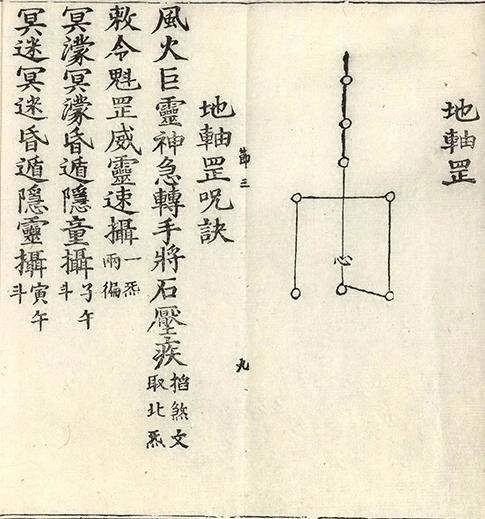 地軸罡
心
節三
九
地軸罡呪訣
風火巨靈神急轉手將石壓疾掐煞文取北炁
敕令魁罡威靈速攝一炁兩徧
冥濛冥濛昏遁隱童攝子午斗
冥迷冥迷昏遁隱靈攝寅午斗